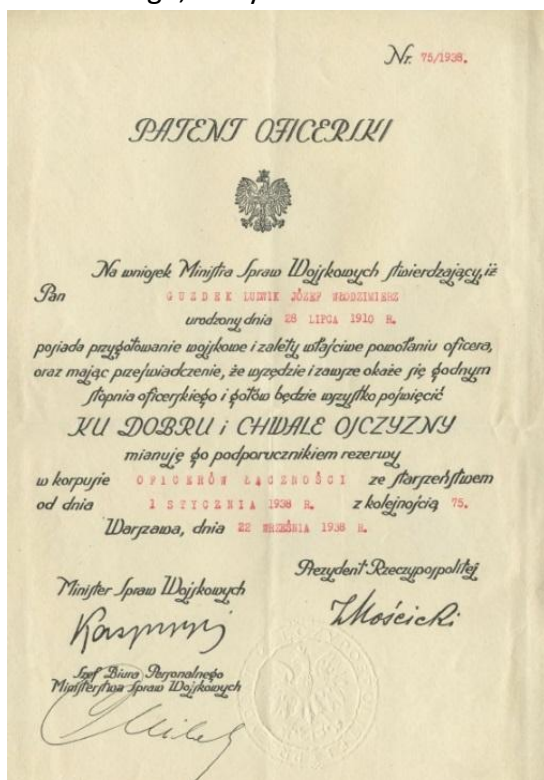 Nr. 75/1938.
PATENT OFICERSKI
Na wniosek Ministra Spraw Wojskowych stwierdzający, iż
Pan GUZDEK LUDWIK JÓZEF WŁODZIMIERZ
urodzony dnia 28 LIPCA 1910 R.
posiada przygotowanie wojskowe i zalety właściwe powołaniu oficera,
oraz mając przeświadczenie, że wszędzie i zawsze okaże się godnym
stopnia oficerskiego i gotów będzie wszystko poświęcić
KU DOBRU i CHWALE OJCZYZNY
mianuję go podporucznikiem rezerwy
w korpusie OFICERÓW ŁĄCZNOŚCI ze starszeństwem
od dnia 1 STYCZNIA 1938 R. z kolejnością 75.
Warszawa, dnia 22 WRZEŚNIA 1938 R.
Prezydent Rzeczypospolitej
Minister Spraw Wojskowych
IMościcki
Szef Biura Personalnego
Ministerstwa Spraw Wojskowych